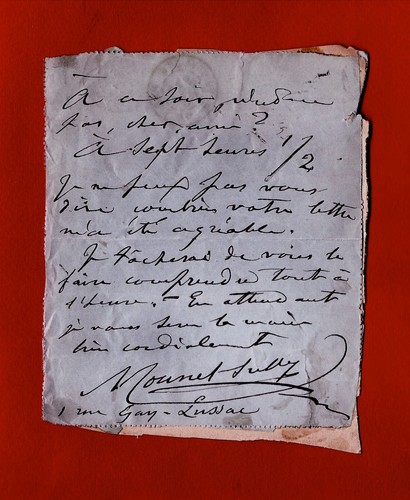 À ce soir, n'est-ce
pas, cher ami ?
À Sept heures 1/2
Je ne peux pas vous
dire combien votre lettre
m'a été agréable.
Je tâcherai de vous le
faire comprendre tout à
l'heure. - En attendant
je vous serre la main
bien cordialement
Mounet Sully
1 rue Gay-Lussac